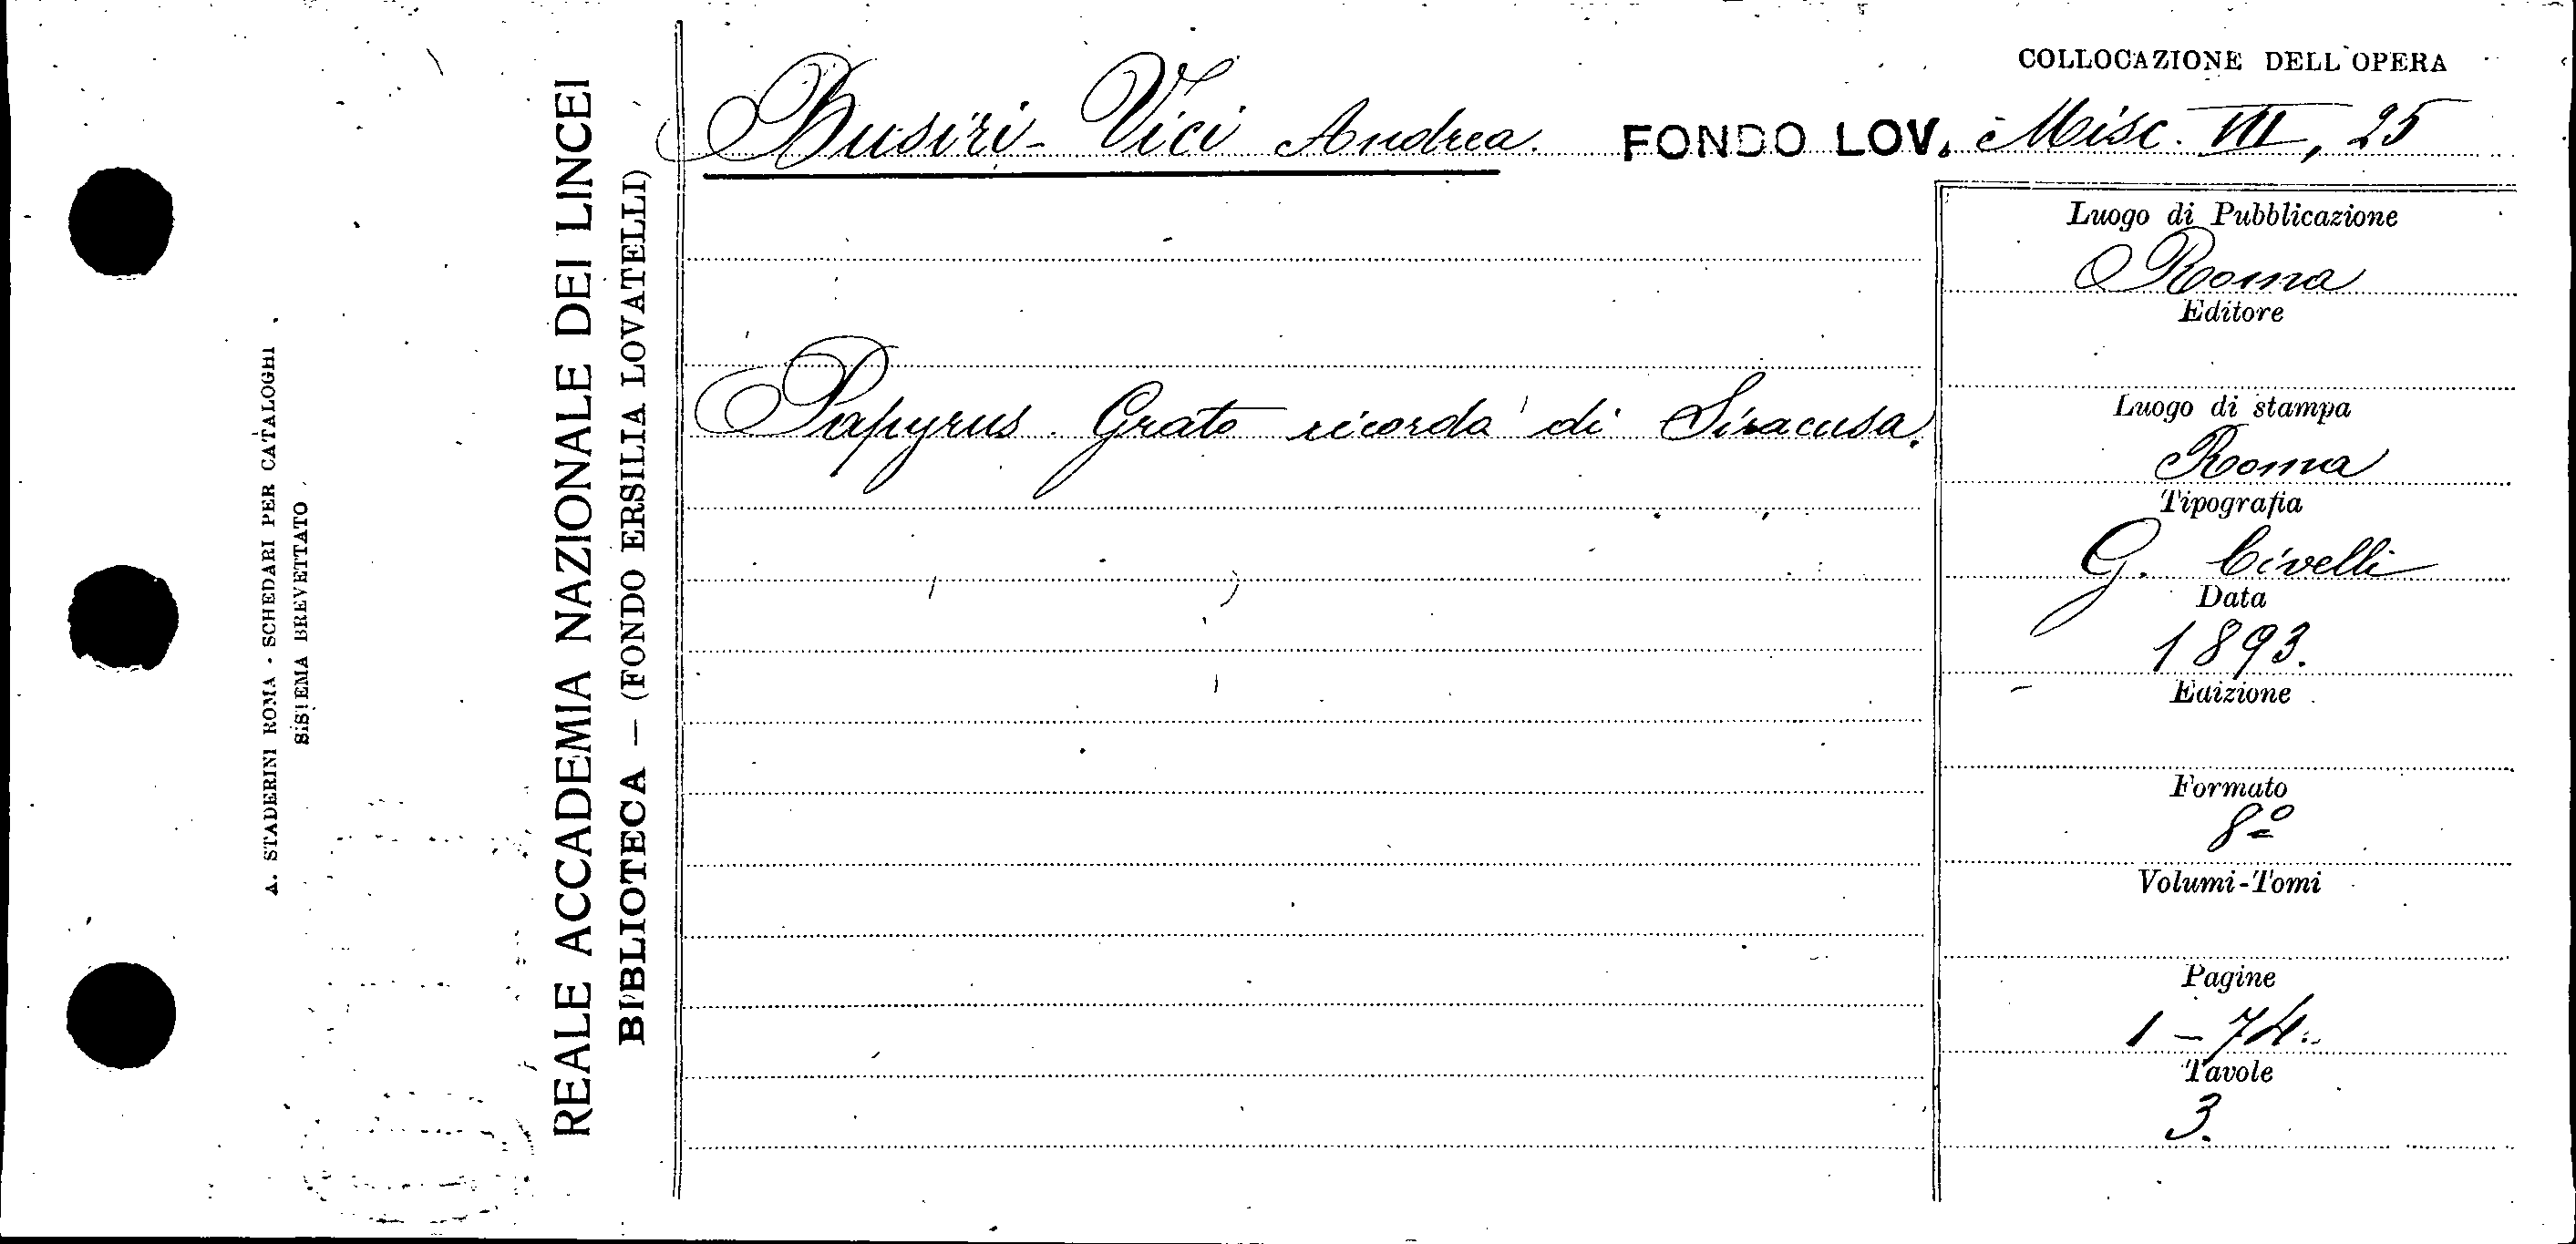 A. STADERINI ROMA - SCHEDARI PER CATALOGHI
SISTEMA BREVETTATO
REALE ACCADEMIA NAZIONALE DEI LINCEI
BIBLIOTECA — (FONDO ERSILIA LOVATELLI)
COLLOCAZIONE DELL'OPERA
Busiri-Vici Andrea. FONDO LOV. Misc. VII, 25
Papyrus. Grato ricordo di Siracusa.
Luogo di Pubblicazione
Roma
Editore
Luogo di stampa
Roma
Tipografia
G. Civelli
Data
1893.
Edizione
Formato
8º
Volumi-Tomi
Pagine
1-74.
Tavole
3.